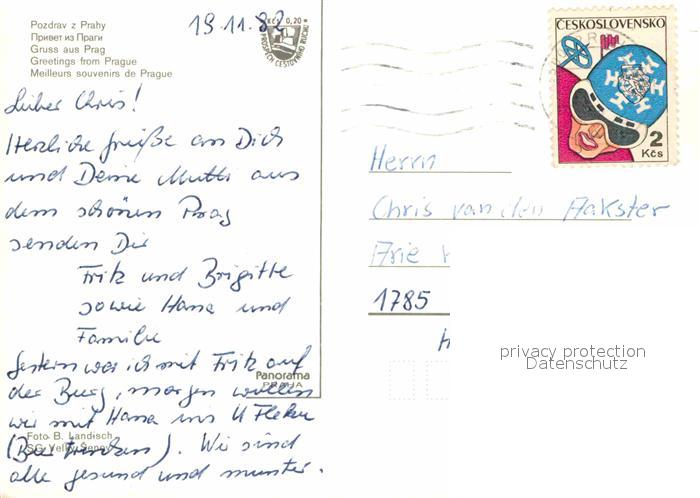 19.11.82
Pozdrav z Prahy
Привет из Праги
Gruss aus Prag
Greetings from Prague
Meilleurs souvenirs de Prague
Kčs 0,20
PROSPĚCH CESTOVNÍHO RUCHU
ČESKOSLOVENSKO
2
Kčs
Lieber Chris!
Herzliche Grüße an Dich
und Deine Mutti aus
dem schönen Prag
senden Dir
Fritz und Brigitte
sowie Hana und
Familie
Gestern war ich mit Fritz auf
der Burg, morgen wollen
wir mit Hana ins U Fleku
(Bier trinken). Wir sind
alle gesund und munter.
Panorama
PRAHA
Foto B. Landisch
SG Velký Šenov
Herrn
Chris van den Aakster
Arie
1785
privacy protection
Datenschutz